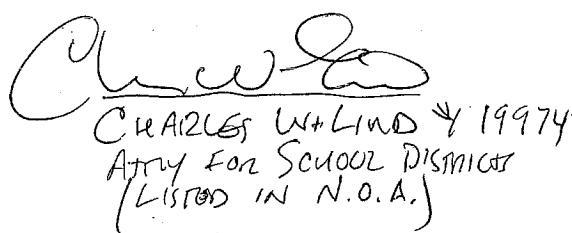 CHARLES W. LIND # 19974
ATTY FOR SCHOOL DISTRICTS
(LISTED IN N.O.A.)